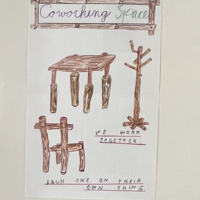 Coworking Space
WE WORK
TOGETHER.
EACH ONE ON THEIR
OWN THING.